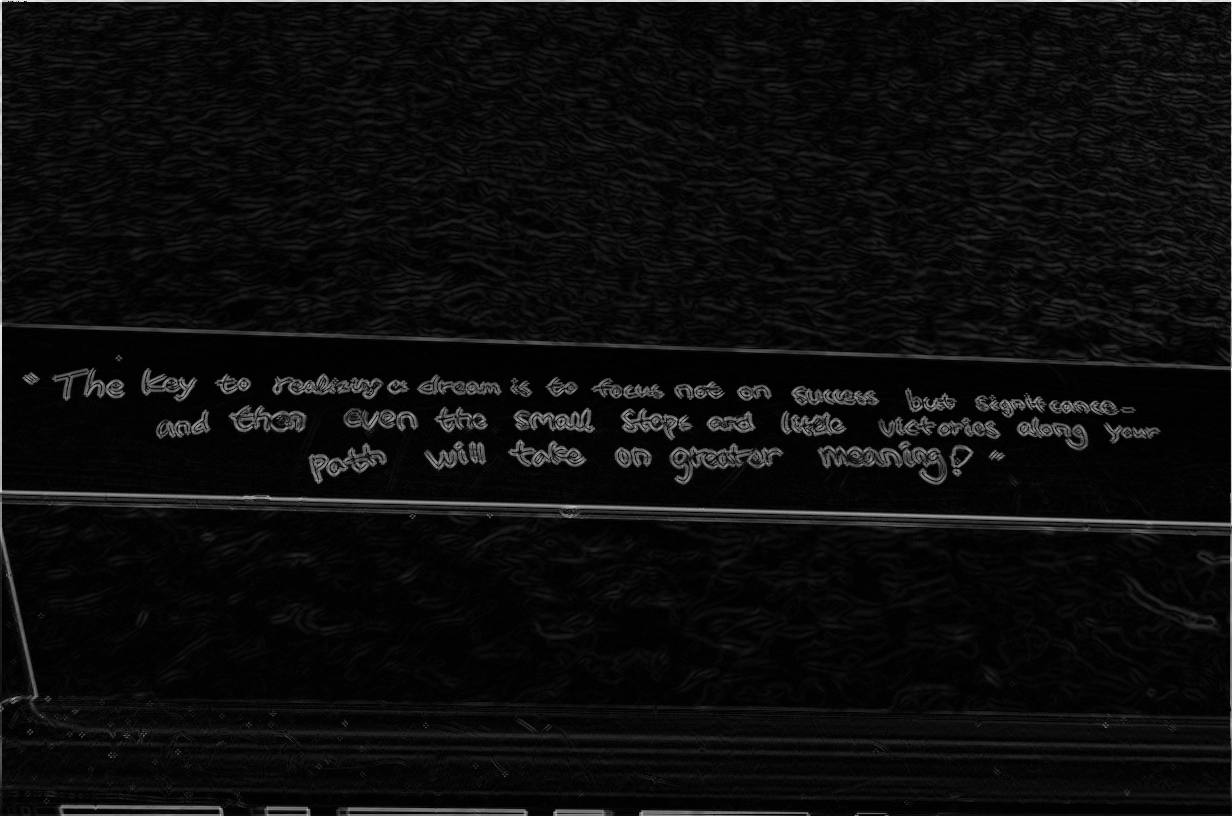 "The key to realizing a dream is to focus not on success but significance-
and then even the small steps and little victories along your
path will take on greater meaning!"